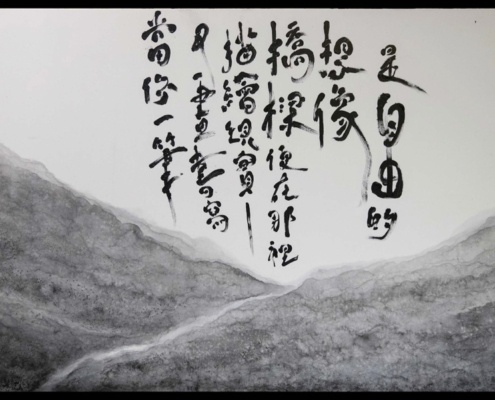 當你一筆
又一畫書寫
描繪現實—
橋樑便在那裡
想像
是自由的